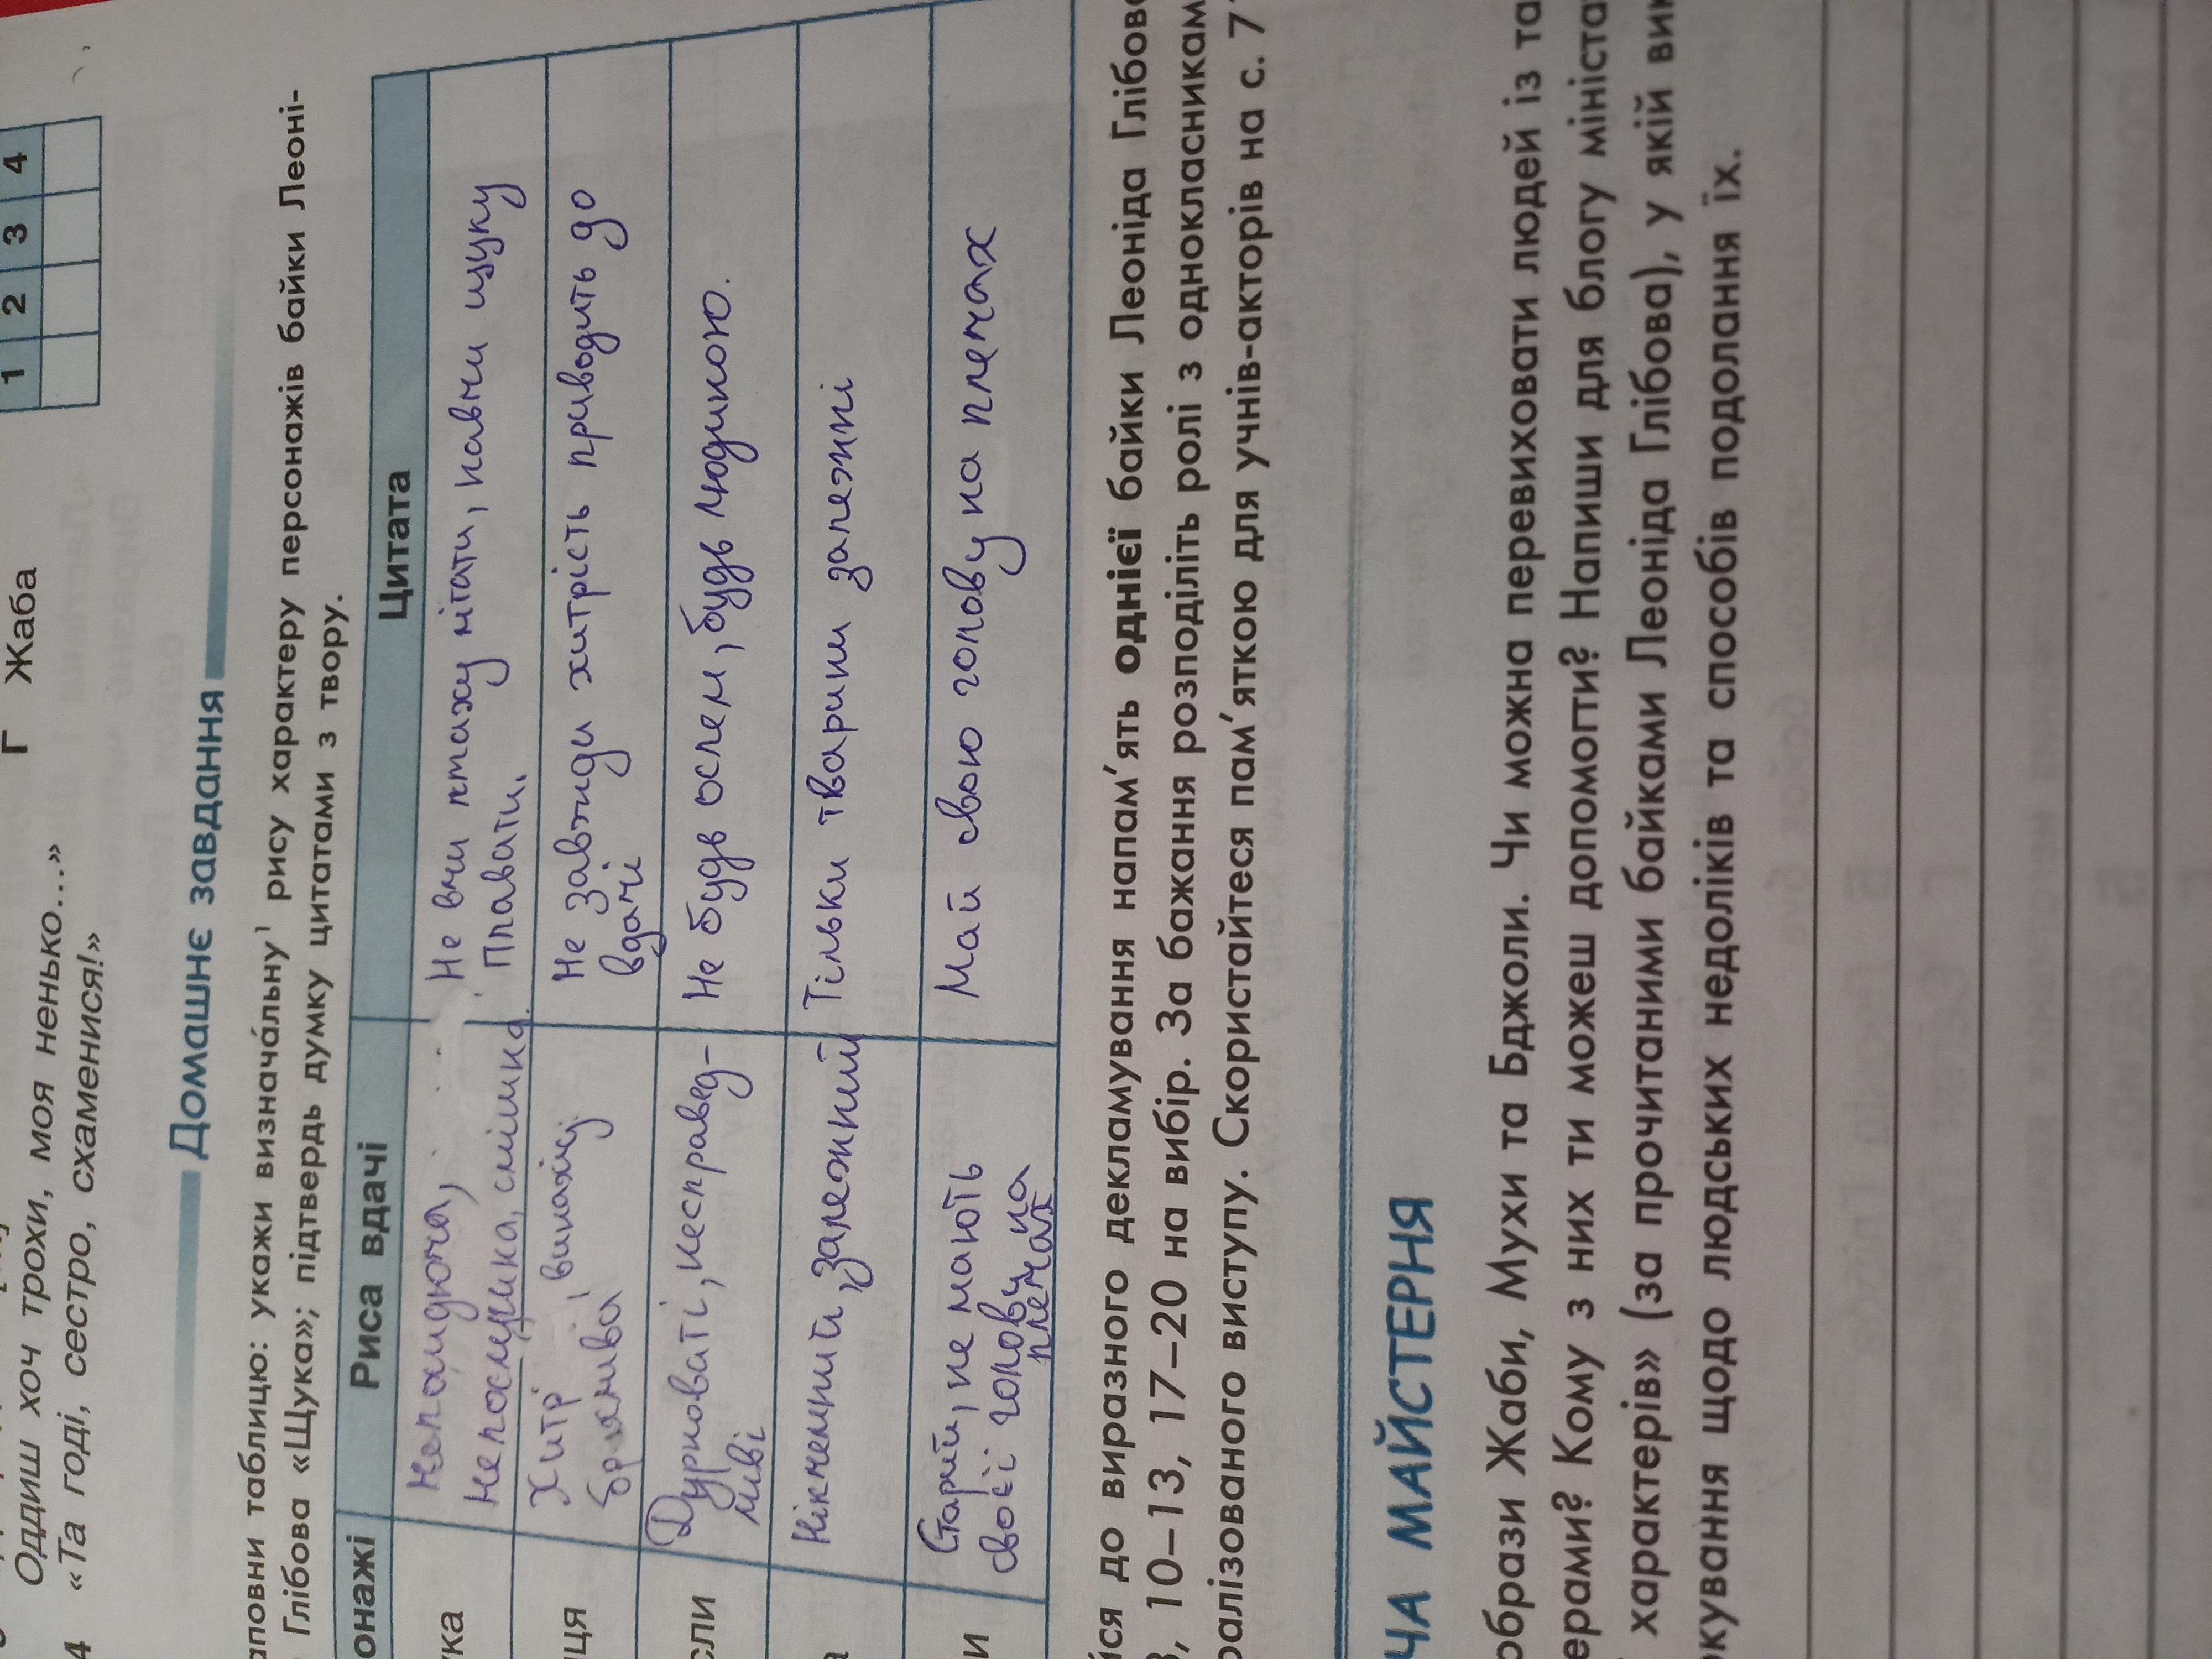 1 2 3 4
Г Жаба
Оддиш хоч трохи, моя ненько...»
4 «Та годі, сестро, схаменися!»
Домашнє завдання
аповни таблицю: укажи визнача́льну¹ рису характеру персонажів байки Леоні-
Глібова «Щука»; підтвердь думку цитатами з твору.
онажі Риса вдачі Цитата
ука
непосидюча,
непослушна, смішна.
Не вчи птаху літати, навчи щуку
плавати.
иця
хитрі, винахід
брехлива
Не завжди хитрість приводить до
вдачі
сли
Дурноваті, несправед-
ливі
Не будь ослем, будь людиною.
а
Нікчемний, залежний
Тільки тварини залежні
и
Старий, не мають
своєї голови на
плечах
Май свою голову на плечах
йся до виразного декламування напам'ять однієї байки Леоніда Глібов
3, 10–13, 17–20 на вибір. За бажання розподіліть ролі з однокласникам
ралізованого виступу. Скористайтеся пам'яткою для учнів-акторів на с. 7
ЧА МАЙСТЕРНЯ
образи Жаби, Мухи та Бджоли. Чи можна перевиховати людей із та
ерами? Кому з них ти можеш допомогти? Напиши для блогу мініста
характерів» (за прочитаними байками Леоніда Глібова), у якій вик
ркування щодо людських недоліків та способів подолання їх.